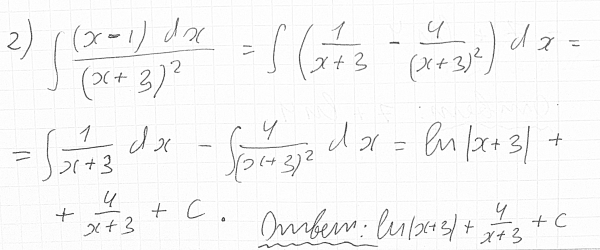 2) ∫ (x-1) dx / (x+3)² = ∫ (1/(x+3) - 4/(x+3)²) dx =
= ∫ 1/(x+3) dx - ∫ 4/(x+3)² dx = ln |x+3| +
+ 4/(x+3) + C . Ответ: ln|x+3| + 4/(x+3) + C